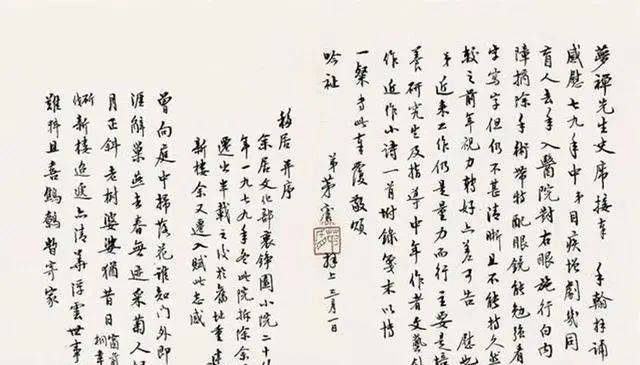 夢禪先生史席接奉 手翰拜誦
感慰七九年中弟目疾增劇幾同
盲人去年入醫院對右眼施行白內
障摘除手術帶特配眼鏡能勉強看
字寫字但仍不甚清晰且不能持久然
較之前年視力轉好上差可告 慰也
弟近來工作仍是量力而行主要是培
養研究生及指導中年作者文藝
作近作小詩一首附錄箋末以博
一粲專此奉覆敬頌
吟祉
弟茅 拜上 三月一
移居并序
余居文化部裏 園小院二十
年一九七九年冬此院拆除余
遷出半載之後於舊址重建
新樓余又遷入賦此志感
曾向庭中掃落花誰知門外即
涯辭巢燕去春無迹采菊人
月正斜老樹婆娑猶昔日
窗前
桐幸
斫新樓迤邐亦清華浮雲世事
難料且喜鷦鷯暫寄家